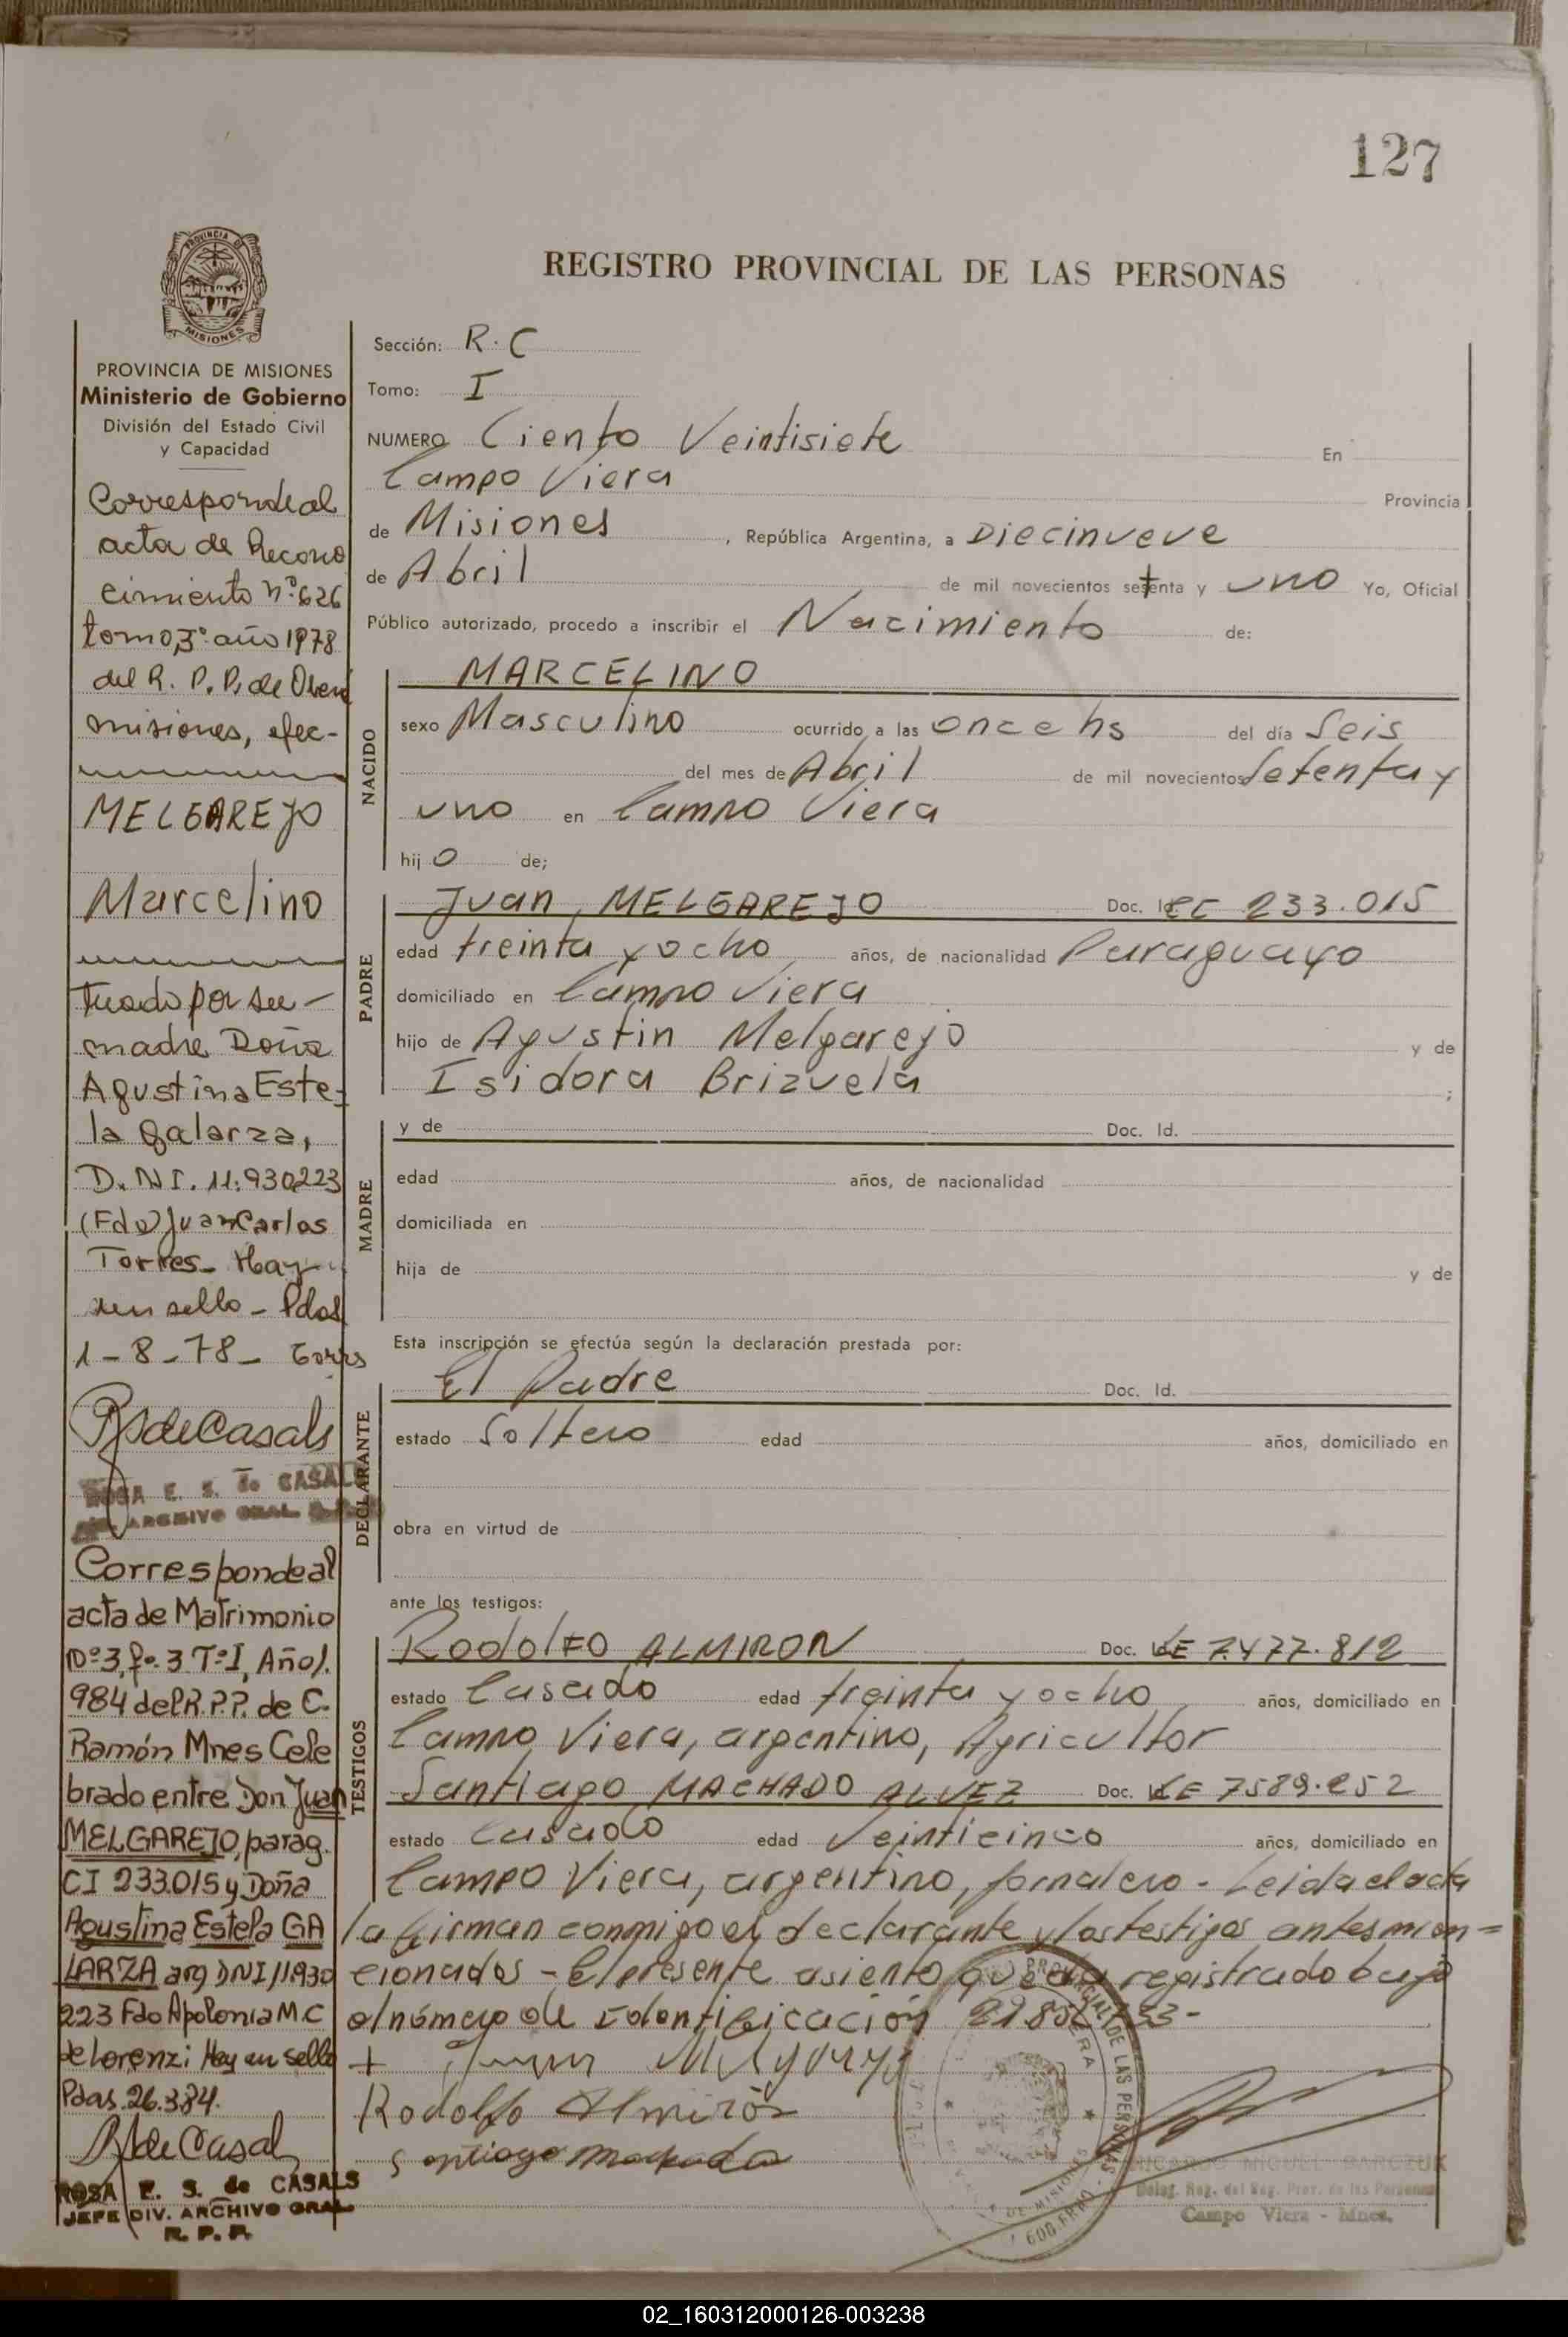 127
PROVINCIA DE
MISIONES
REGISTRO PROVINCIAL DE LAS PERSONAS
PROVINCIA DE MISIONES
Ministerio de Gobierno
División del Estado Civil
y Capacidad
Corresponde al
acta de Recono
cimiento nº 626
tomo 3º año 1978
del R. P. P. de Oberá
misiones, efec-
MELGAREJO
Marcelino
tuado por su -
madre Doña
Agustina Este-
la Galarza,
D.N.I. 11.930.223
(Fdo) Juan Carlos
Torres - Hay
un sello - Pdas
1-8-78 - Torres
RSdeCasals
ROSA E. S. de CASALS
ARCHIVO GRAL
Corresponde al
acta de Matrimonio
Nº 3, fº. 3 Tº I, Año 1.
984 del R.P.P. de C.
Ramón Mnes Cele
brado entre Don Juan
MELGAREJO, parag.
CI 233.015 y Doña
Agustina Estela GA
LARZA arg DNI 11.930
223 Fdo Apolonia M.C
de Lorenzi Hay un sello
Pdas. 26.3.84.
RSdeCasals
ROSA E. S. de CASALS
JEFE DIV. ARCHIVO GRAL
R. P. P.
Sección: R.C
Tomo: I
NUMERO Ciento Veintisiete En
Campo Viera Provincia
de Misiones, República Argentina, a Diecinueve
de Abril de mil novecientos setenta y uno Yo, Oficial
Público autorizado, procedo a inscribir el Nacimiento de:
NACIDO
MARCELINO
sexo Masculino ocurrido a las once hs del día Seis
del mes de Abril de mil novecientos Setenta y
uno en Campo Viera
hijo de;
PADRE
Juan, MELGAREJO Doc. Id. CI 233.015
edad treinta y ocho años, de nacionalidad Paraguayo
domiciliado en Campo Viera
hijo de Agustin Melgarejo y de
Isidora Brizuela ;
MADRE
y de Doc. Id.
edad años, de nacionalidad
domiciliada en
hija de y de
Esta inscripción se efectúa según la declaración prestada por:
DECLARANTE
El Padre Doc. Id.
estado Soltero edad años, domiciliado en
obra en virtud de
ante los testigos:
TESTIGOS
Rodolfo ALMIRON Doc. Id. LE 7.477.812
estado Casado edad treinta y ocho años, domiciliado en
Campo Viera, argentino, Agricultor
Santiago MACHADO ALVEZ Doc. Id. LE 7589.252
estado Casado edad Veinticinco años, domiciliado en
Campo Viera, argentino, jornalero - Leida el acta
la firman conmigo el declarante y los testigos antes men=
cionados - El presente asiento queda registrado bajo
el número de Identificación
+ Juan Melgarejo
Rodolfo Almirón
Santiago Machado
PROVINCIAL DE LAS PERSONAS
DE MISIONES
MIGUEL
Deleg. Reg. del Reg. Prov. de las Personas
Campo Viera - Mnes.
02_160312000126-003238